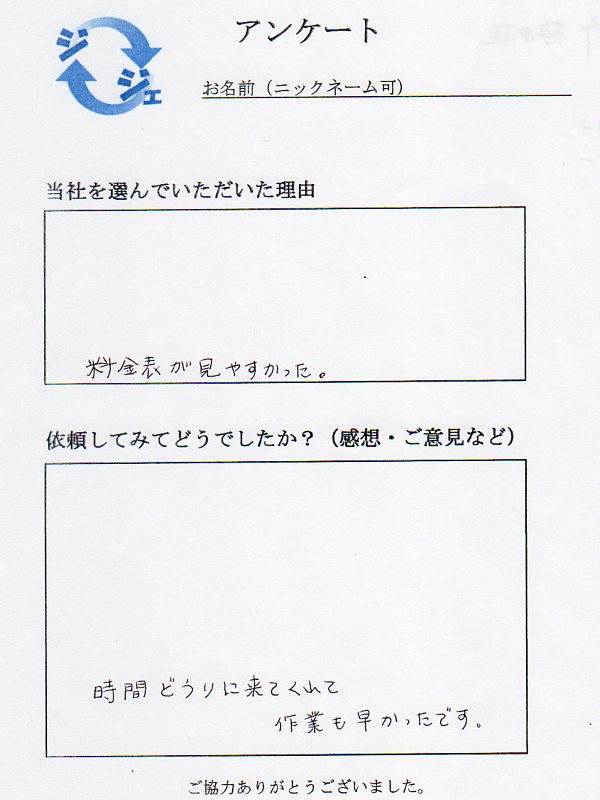 ジジェ
アンケート
お名前（ニックネーム可）
当社を選んでいただいた理由
料金表が見やすかった。
依頼してみてどうでしたか？（感想・ご意見など）
時間どうりに来てくれて
作業も早かったです。
ご協力ありがとうございました。